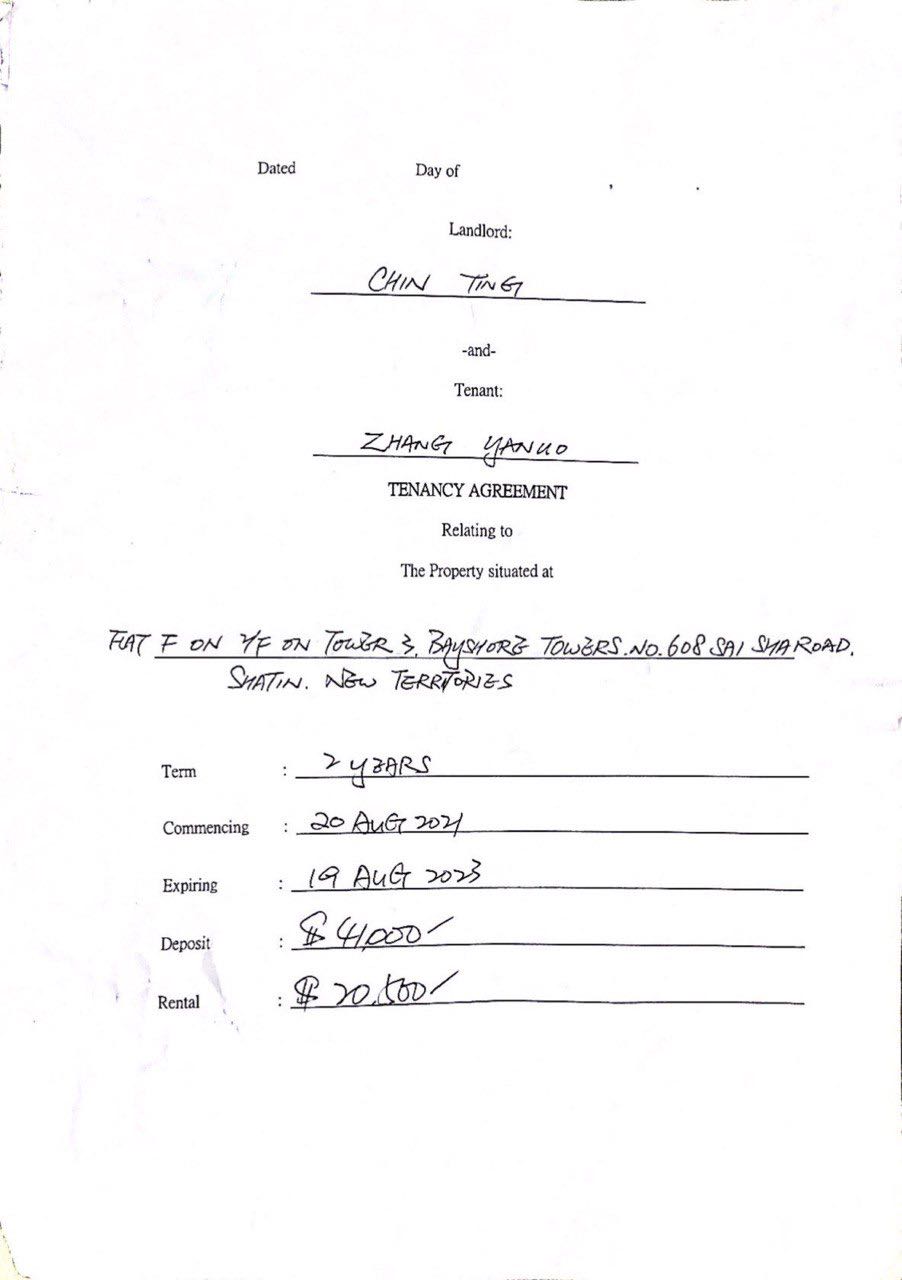 Dated Day of , .
Landlord:
CHIN TING
-and-
Tenant:
ZHANG
TENANCY AGREEMENT
Relating to
The Property situated at
FLAT F ON ON TOWER 3, BAYSHORE TOWERS. NO. 608 SAI SHA ROAD.
SHATIN. NEW TERRITORIES
Term : 2 YEARS
Commencing : 20 AUG 2021
Expiring : 19 AUG 2023
Deposit : $ 41,000/
Rental : $ 20,500/